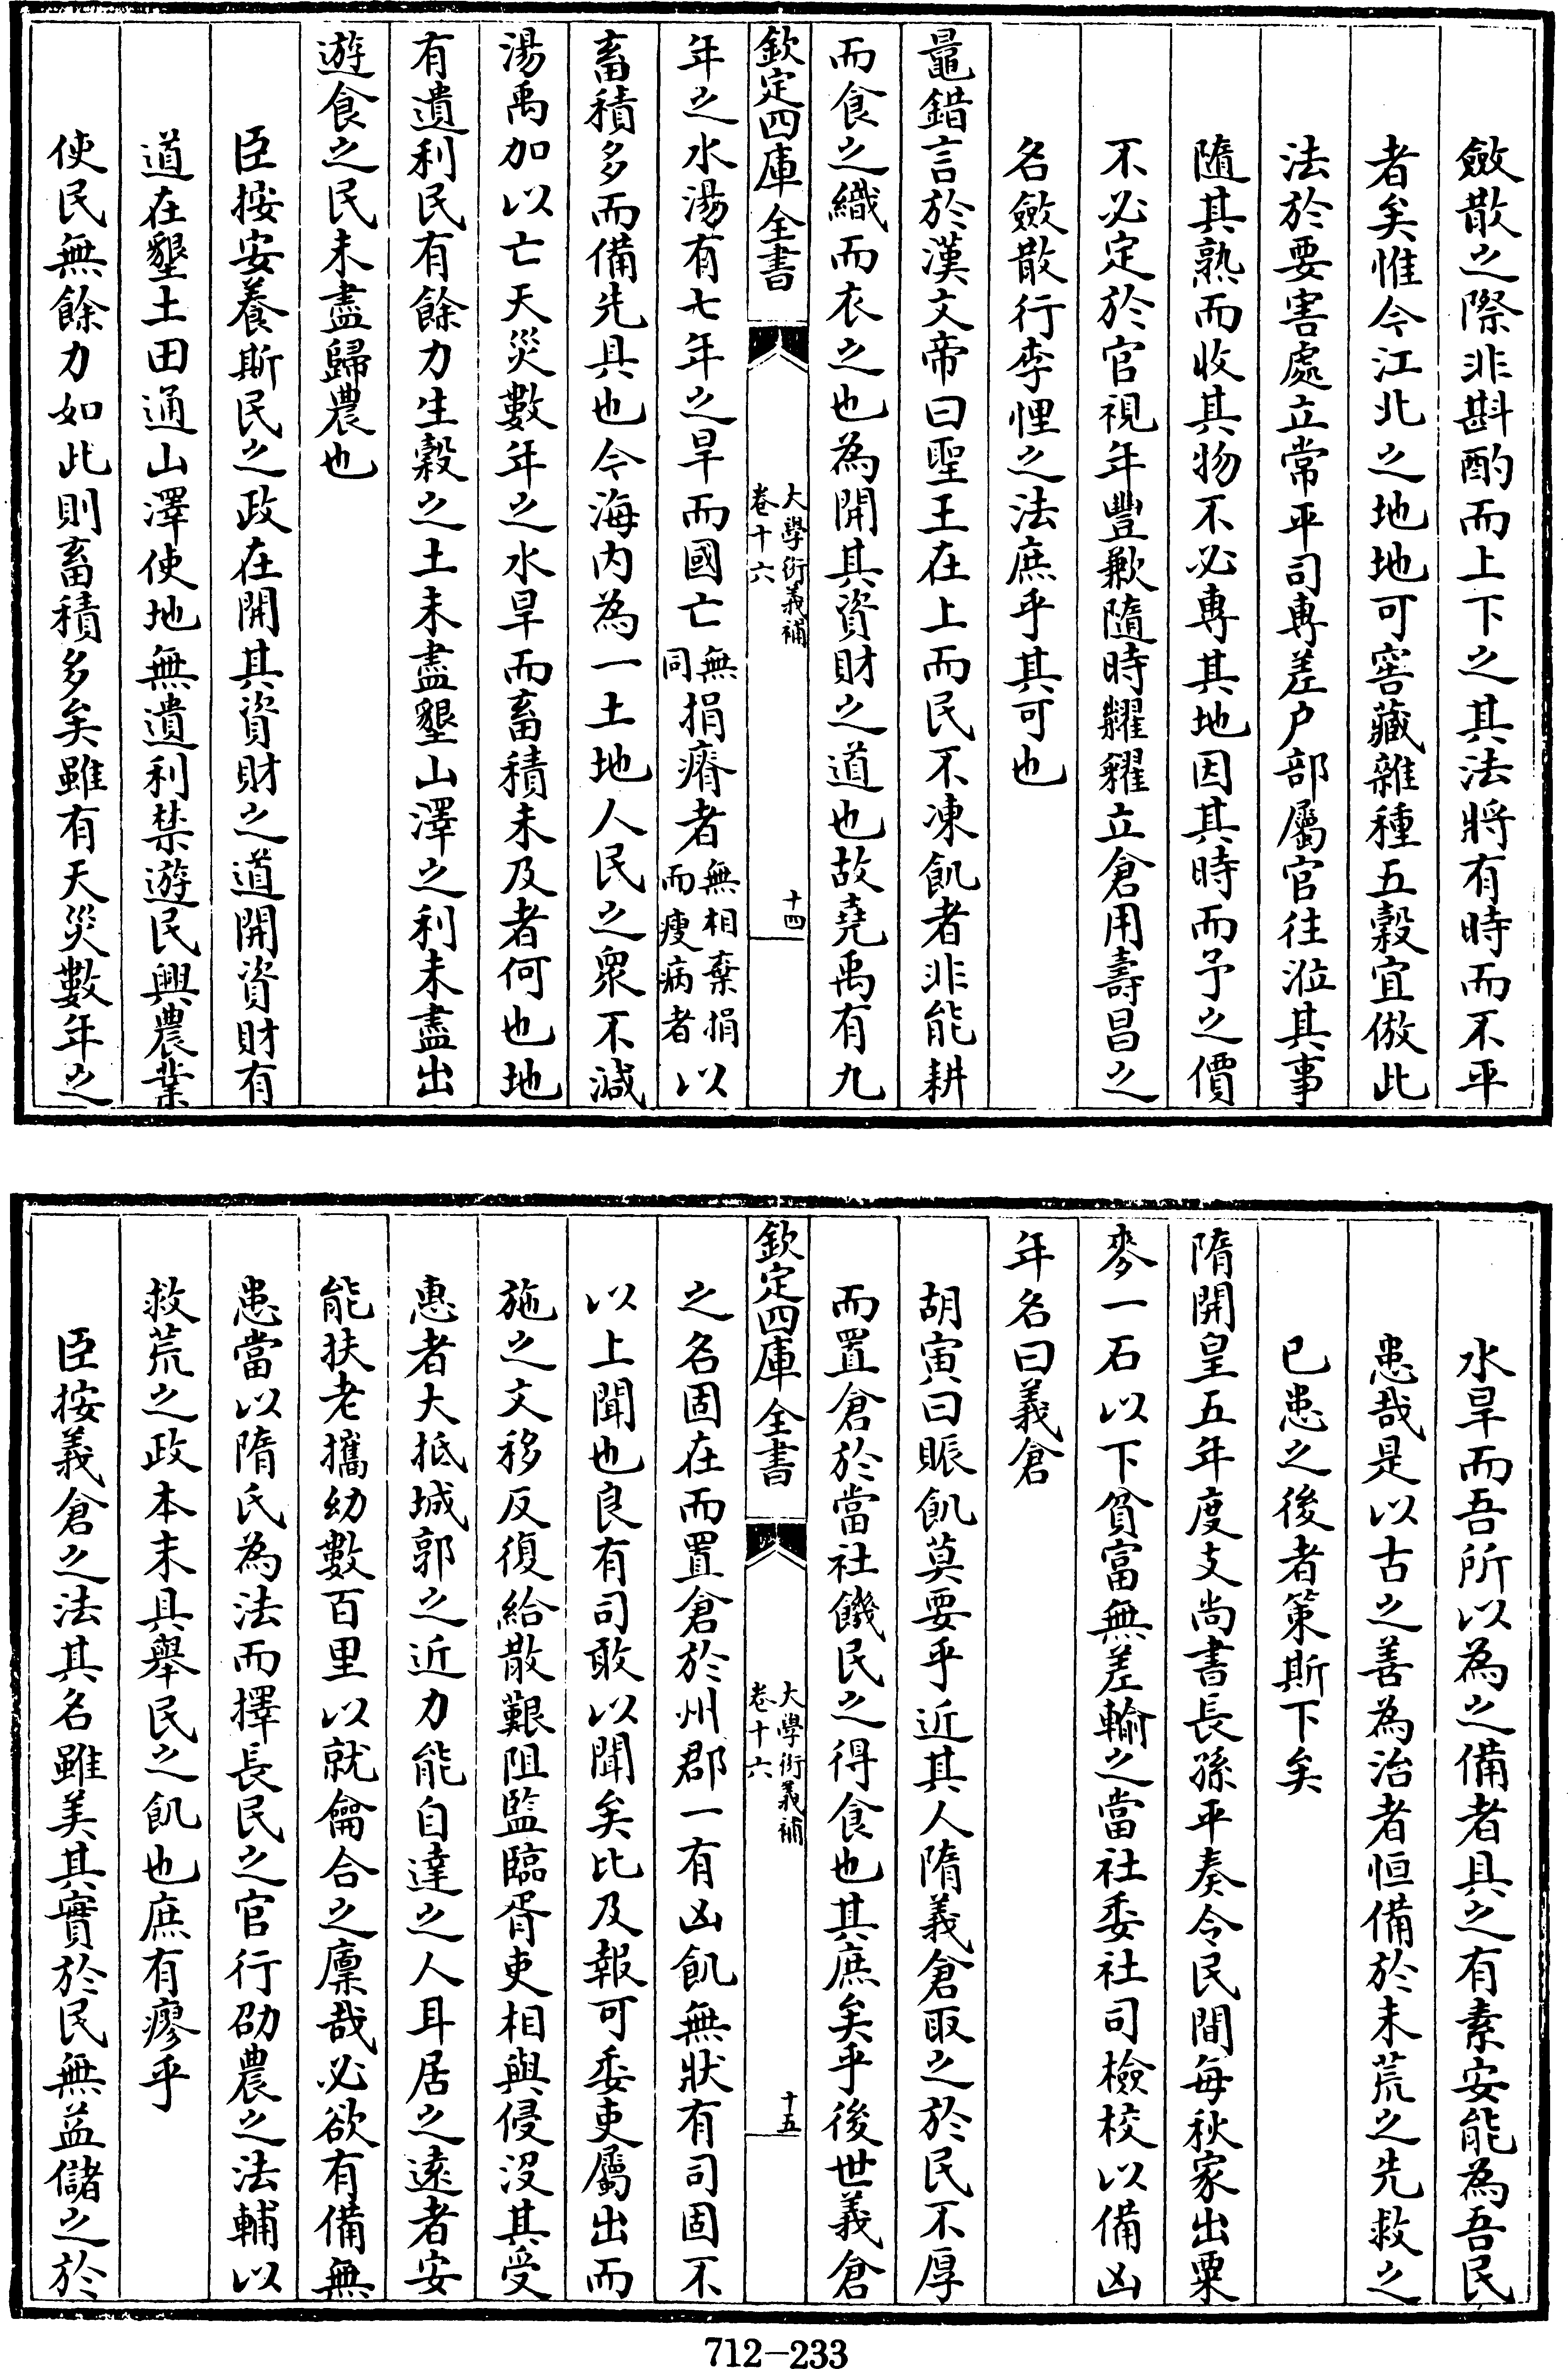 斂散之際非斟酌而上下之其法將有時而不平
者矣惟今江北之地地可窖藏雜種五穀宜倣此
法於要害處立常平司專差户部屬官往涖其事
隨其熟而收其物不必專其地因其時而予之價
不必定於官視年豐歉隨時糶糴立倉用壽昌之
名斂散行李悝之法庶乎其可也
鼂錯言於漢文帝曰聖王在上而民不凍飢者非能耕
而食之織而衣之也為開其資財之道也故堯禹有九
欽定四庫全書
大學衍義補
卷十六
十四
年之水湯有七年之旱而國亡無同捐瘠者無相棄捐而瘦病者以
畜積多而備先具也今海内為一土地人民之衆不減
湯禹加以亡天災數年之水旱而畜積未及者何也地
有遺利民有餘力生穀之土未盡墾山澤之利未盡出
遊食之民未盡歸農也
臣按安養斯民之政在開其資財之道開資財有
道在墾土田通山澤使地無遺利禁遊民興農業
使民無餘力如此則畜積多矣雖有天災數年之
水旱而吾所以為之備者具之有素安能為吾民
患哉是以古之善為治者恒備於未荒之先救之
已患之後者策斯下矣
隋開皇五年度支尚書長孫平奏令民間每秋家出粟
麥一石以下貧富無差輸之當社委社司檢校以備凶
年名曰義倉
胡寅曰賑飢莫要乎近其人隋義倉取之於民不厚
而置倉於當社饑民之得食也其庶矣乎後世義倉
欽定四庫全書
大學衍義補
卷十六
十五
之名固在而置倉於州郡一有凶飢無狀有司固不
以上聞也良有司敢以聞矣比及報可委吏屬出而
施之文移反復給散艱阻監臨胥吏相與侵沒其受
惠者大抵城郭之近力能自達之人耳居之遠者安
能扶老攜幼數百里以就龠合之廩哉必欲有備無
患當以隋氏為法而擇長民之官行劭農之法輔以
救荒之政本末具舉民之飢也庶有瘳乎
臣按義倉之法其名雖美其實於民無益儲之於
712-233